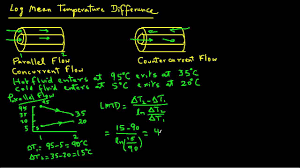 Log Mean Temperature Difference
1 2
Parallel Flow
Concurrent Flow
Countercurrent Flow
Hot fluid enters at 95°C exits at 35°C
Cold fluid enters at 5°C exits at 20°C
Parallel Flow
95
35
20
5
ΔT₁ = 95-5 = 90°C
ΔT₂ = 35-20 = 15°C
LMTD = ΔT₂ - ΔT₁ / ln ΔT₂/ΔT₁
= 15-90 / ln(15/90) = 4